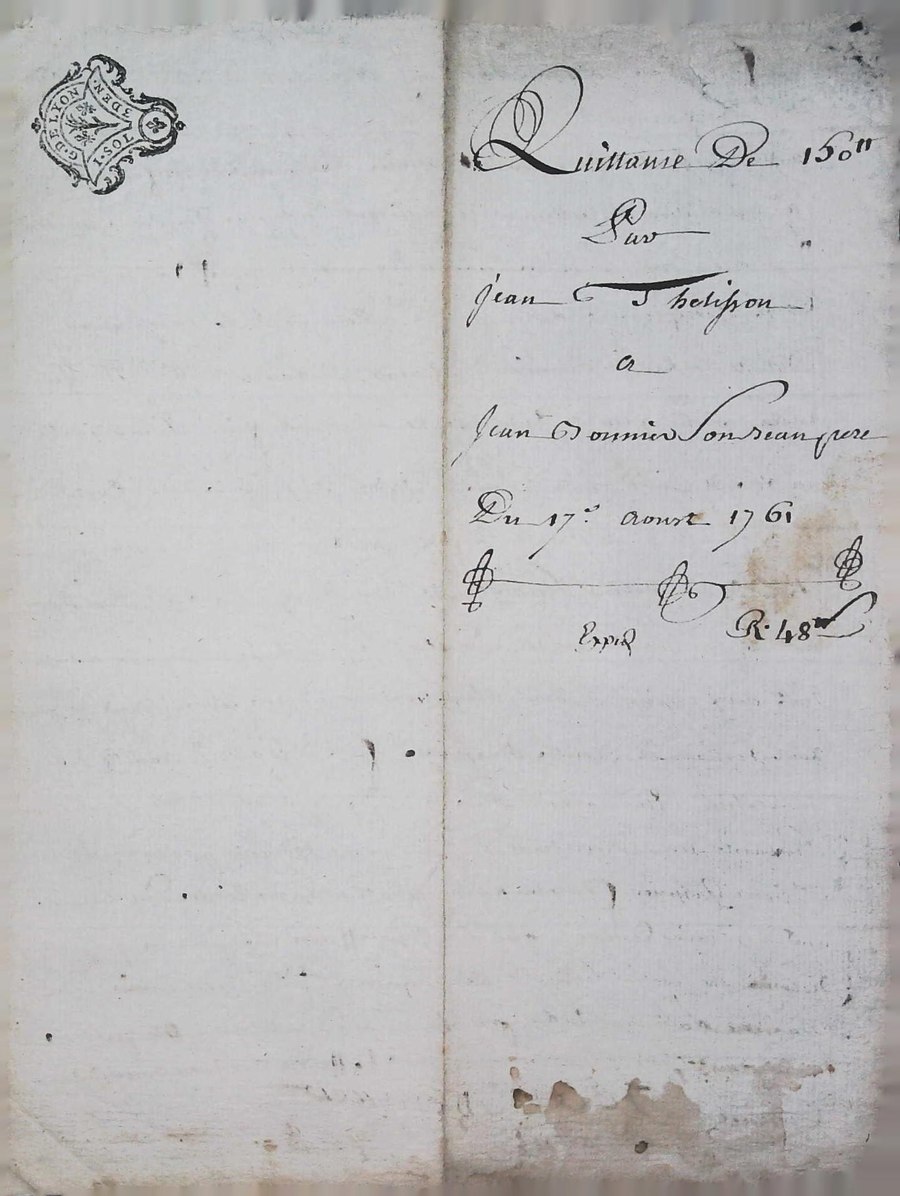 G. DE LYON
1. SOL
3 DEN.
Quittance De 150ᵗᵗ
Par
jean Thelisson
a
Jean Bonnier Son Beau pere
Du 17.e Aoust 1761
Exped R. 48ˢ